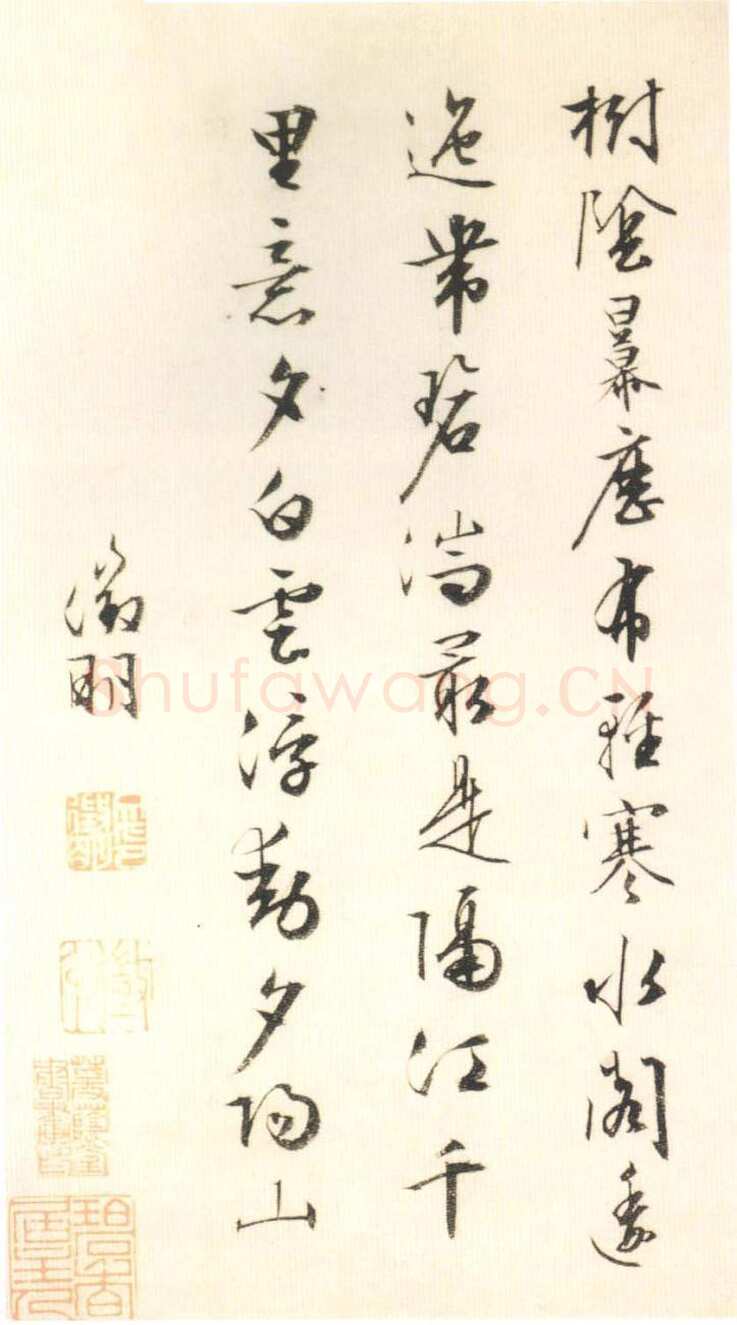 樹陰冪歷布輕寒水閣逶
迤帶碧湍最是隔江千
里意夕白雲浮動夕陽山
徵明
Shufawang.CN